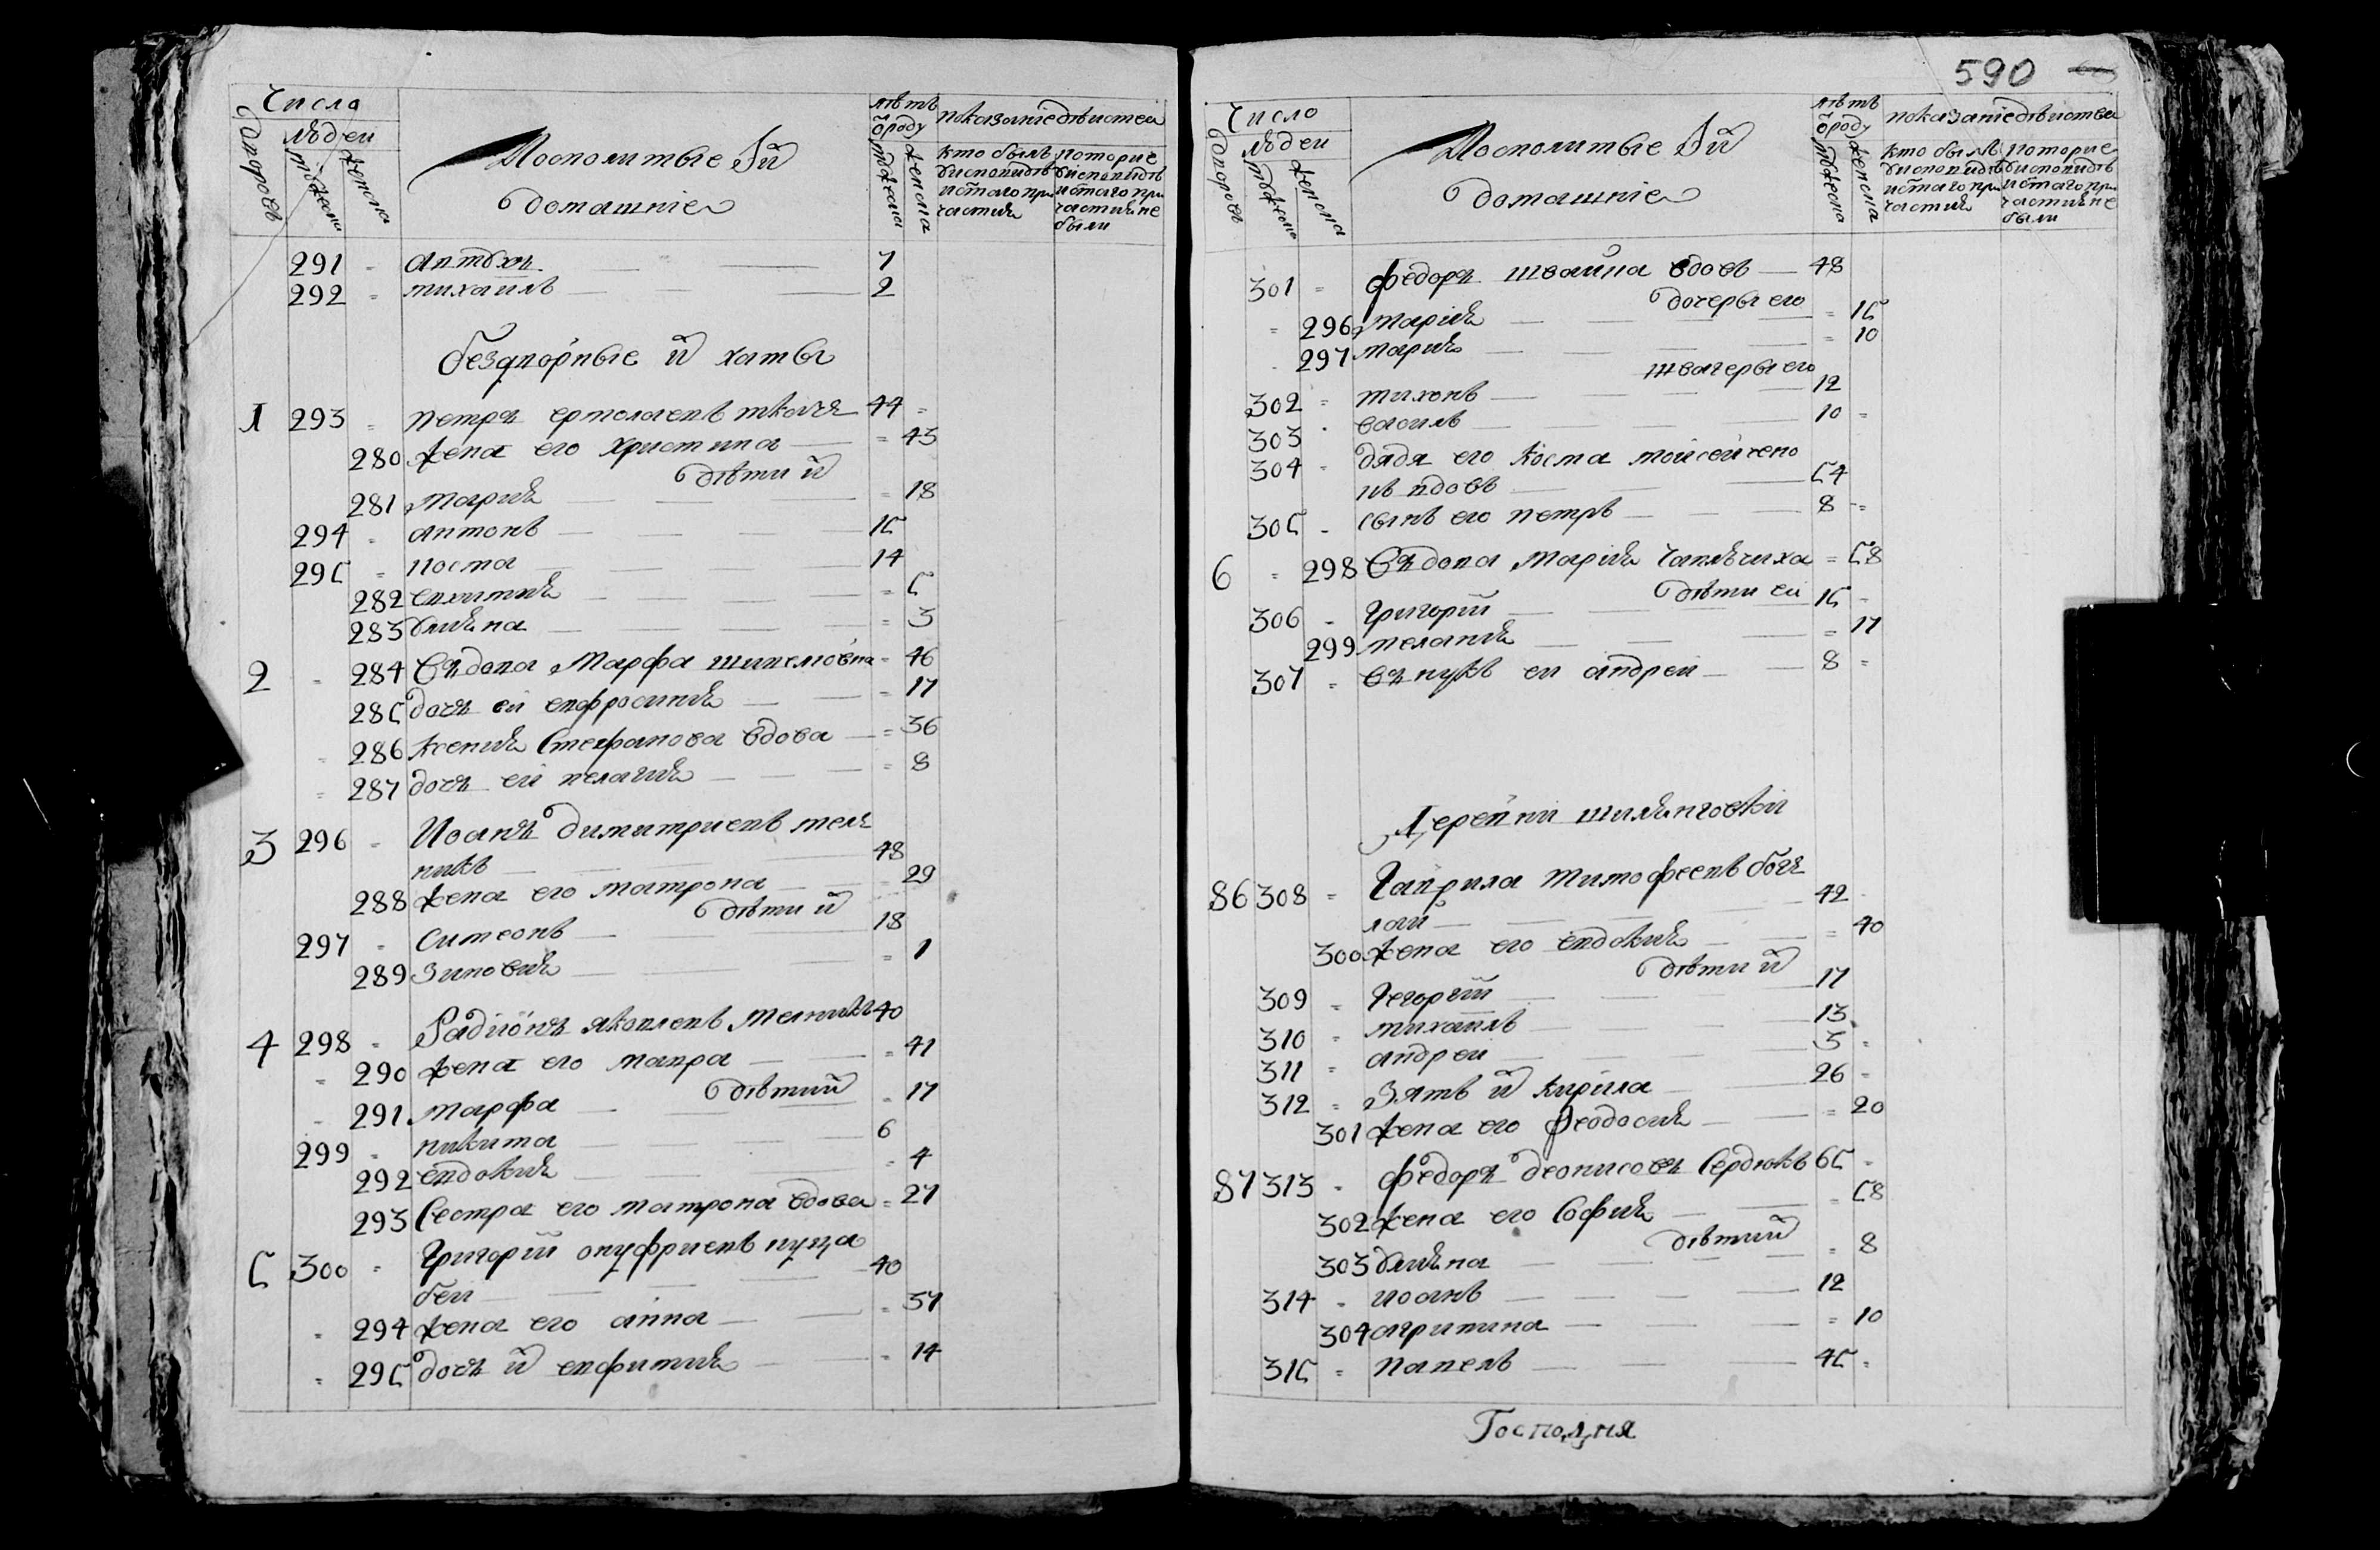 Числа
людеи
дворовъ
мужеска
женска
Посполитые Ӏй
домашние
лѣтъ
ѿ роду
мужеска
женска
показание дѣиства
кто былъ
у исповиди
и с̃таго при
частия
которие
у исповиди
и с̃таго при
частия не
были
291 - антухъ — 7
292 - михаилъ — 2
бездворные ӣ хаты
1 293 - петръ ермолаевъ ткачъ 44 -
280 жена его христина — - 43
дѣти ӣ
281 мария — - 18
294 - антонъ — 15
295 - коста — 14
282 евхимия — - 5
283 улияна — - 3
2 - 284 въдова марфа шинелювна - 46
285 дочъ еи евфросиния — - 17
- 286 ксения стефанова вдова — - 36
- 287 дочъ еи пелагия — - 8
3 296 - иоанъ димитриевъ мель
никъ — 48
288 жена его матрона — 29
дѣти ӣ
297 - симеонъ — 18
289 зиновия — - 1
4 298 - радионъ яковлевъ мелникъ 40
- 290 жена его мавра — - 41
дѣти ӣ
- 291 марфа — - 17
299 - никита — 6
292 евдокия — - 4
293 сестра его матрона вдова - 27
5 300 - григорий онуфриевъ куца
беи — 40
- 294 жена его анна — - 37
- 295 дочъ ӣ евфимия — - 14
590
Число
людеи
дворовъ
мужеска
женска
Посполитые Ӏй
домашние
лѣтъ
ѿ роду
мужеска
женска
показание дѣиства
кто былъ
у исповидѣ
и с̃таго при
частия
которие
у исповидѣ
и с̃таго при
частия не
были
301 - федоръ шваика вдовъ — 48
дочеры его
- 296 мария — - 15
- 297 мария — - 10
швагеры его
302 - тихонъ — 12
303 - василъ — 10 -
304 - дядя его косма моисеиченко
въ вдовъ — 54
305 - сынъ его петръ — 8 -
6 - 298 въдова мария чаплѣчиха - 58
дѣти еи
306 - григорий — 15 -
299 мелания — - 17
307 - внукъ еи андреи — 8 -
Деревни шиляковки
86 308 - гаврила тимофеевъ бога
лаи — 42 -
300 жена его евдокия — - 40
дѣти ӣ
309 - гегоргий — 17
310 - михаилъ — 13
311 - андреи — 3 -
312 - зять ӣ кирила — 26 -
301 жена его феодосия — - 20
87 313 - федоръ деонисовъ сердюкъ 65 -
302 жена его софия — - 58
дѣти ӣ
303 улияна — - 8
314 - иоанъ — 12
304 агрипина — - 10
315 - павелъ — 45 -
Господня